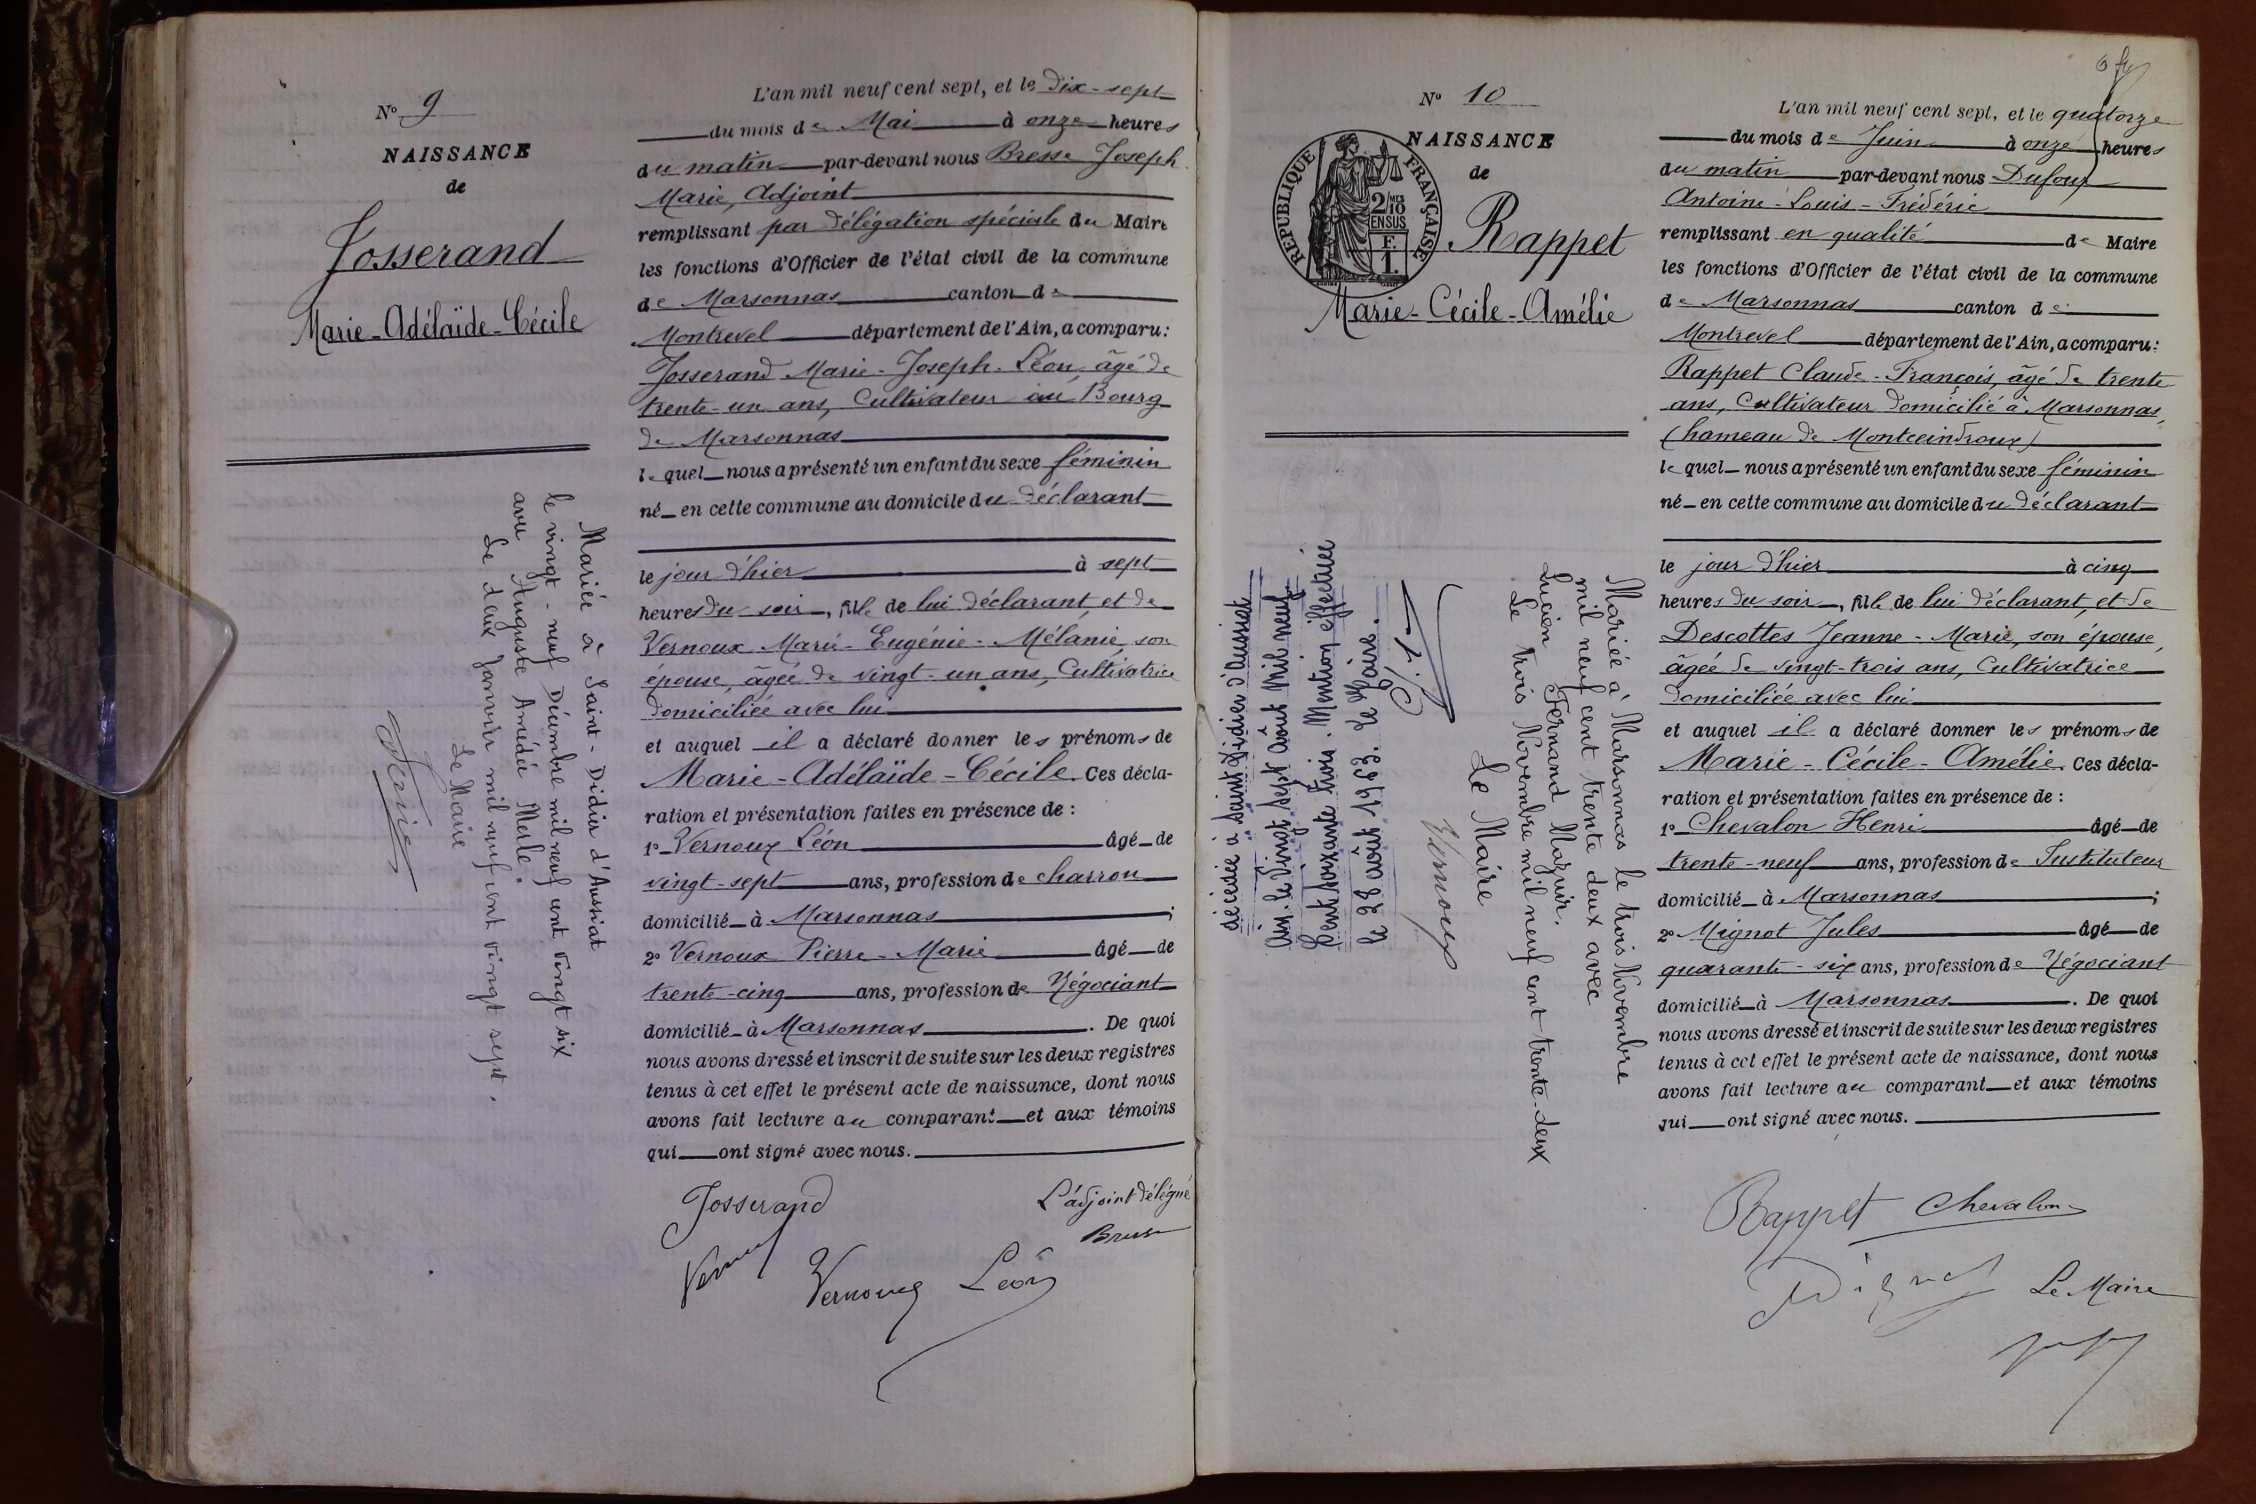 N° 9
NAISSANCE
de
Josserand
Marie-Adélaïde-Cécile
Mariée à Saint-Didier d'Aussiat
le vingt-neuf Décembre mil neuf cent vingt six
avec Auguste Amédée Merle.
Le deux janvier mil neuf cent vingt sept.
Le Maire
L'an mil neuf cent sept, et le dix-sept
du mois de Mai à onze heures
du matin par-devant nous Bresse Joseph
Marie, Adjoint
remplissant par délégation spéciale du Maire
les fonctions d'Officier de l'état civil de la commune
de Marsonnas canton de
Montrevel département de l'Ain, a comparu:
Josserand Marie-Joseph-Léon, âgé de
trente-un ans, Cultivateur au Bourg
de Marsonnas
lequel nous a présenté un enfant du sexe féminin
né en cette commune au domicile du déclarant
le jour d'hier à sept
heures du soir, fille de lui déclarant, et de
Vernoux Marie-Eugénie-Mélanie, son
épouse, âgée de vingt-un ans, Cultivatrice
domiciliée avec lui
et auquel il a déclaré donner les prénoms de
Marie-Adélaïde-Cécile. Ces décla-
ration et présentation faites en présence de :
1° Vernoux Léon âgé de
vingt-sept ans, profession de charron
domicilié à Marsonnas ;
2° Vernoux Pierre-Marie âgé de
trente-cinq ans, profession de Négociant
domicilié à Marsonnas. De quoi
nous avons dressé et inscrit de suite sur les deux registres
tenus à cet effet le présent acte de naissance, dont nous
avons fait lecture au comparant et aux témoins
qui ont signé avec nous.
Josserand
L'adjoint délégué
Bresse
Vernoux Léon
N° 10
NAISSANCE
de
RÉPUBLIQUE FRANÇAISE
2/10 MES
EN SUS
F.
1.
Rappet
Marie-Cécile-Amélie
Mariée à Marsonnas le trois Novembre
mil neuf cent trente deux avec
Lucien Fernand Moguir.
Le trois Novembre mil neuf cent trente-deux
Le Maire
Vernoux
décédée à Saint Didier d'Aussiat
Ain le vingt sept août mil neuf
cent soixante trois. Mention effectuée
le 28 août 1963. Le Maire.
L'an mil neuf cent sept, et le quatorze
du mois de Juin à onze heures
du matin par-devant nous Dufour
Antoine-Louis-Frédéric
remplissant en qualité de Maire
les fonctions d'Officier de l'état civil de la commune
de Marsonnas canton de
Montrevel département de l'Ain, a comparu:
Rappet Claude-François, âgé de trente
ans, Cultivateur domicilié à Marsonnas,
(hameau de Montceindroux)
lequel nous a présenté un enfant du sexe féminin
né en cette commune au domicile du déclarant
le jour d'hier à cinq
heures du soir, fille de lui déclarant, et de
Descottes Jeanne-Marie, son épouse,
âgée de vingt-trois ans, Cultivatrice
domiciliée avec lui
et auquel il a déclaré donner les prénoms de
Marie-Cécile-Amélie. Ces décla-
ration et présentation faites en présence de :
1° Chevalon Henri âgé de
trente-neuf ans, profession de Instituteur
domicilié à Marsonnas ;
2° Mignot Jules âgé de
quarante-six ans, profession de Négociant
domicilié à Marsonnas. De quoi
nous avons dressé et inscrit de suite sur les deux registres
tenus à cet effet le présent acte de naissance, dont nous
avons fait lecture au comparant et aux témoins
qui ont signé avec nous.
Rappet Chevalon
Mignot Le Maire